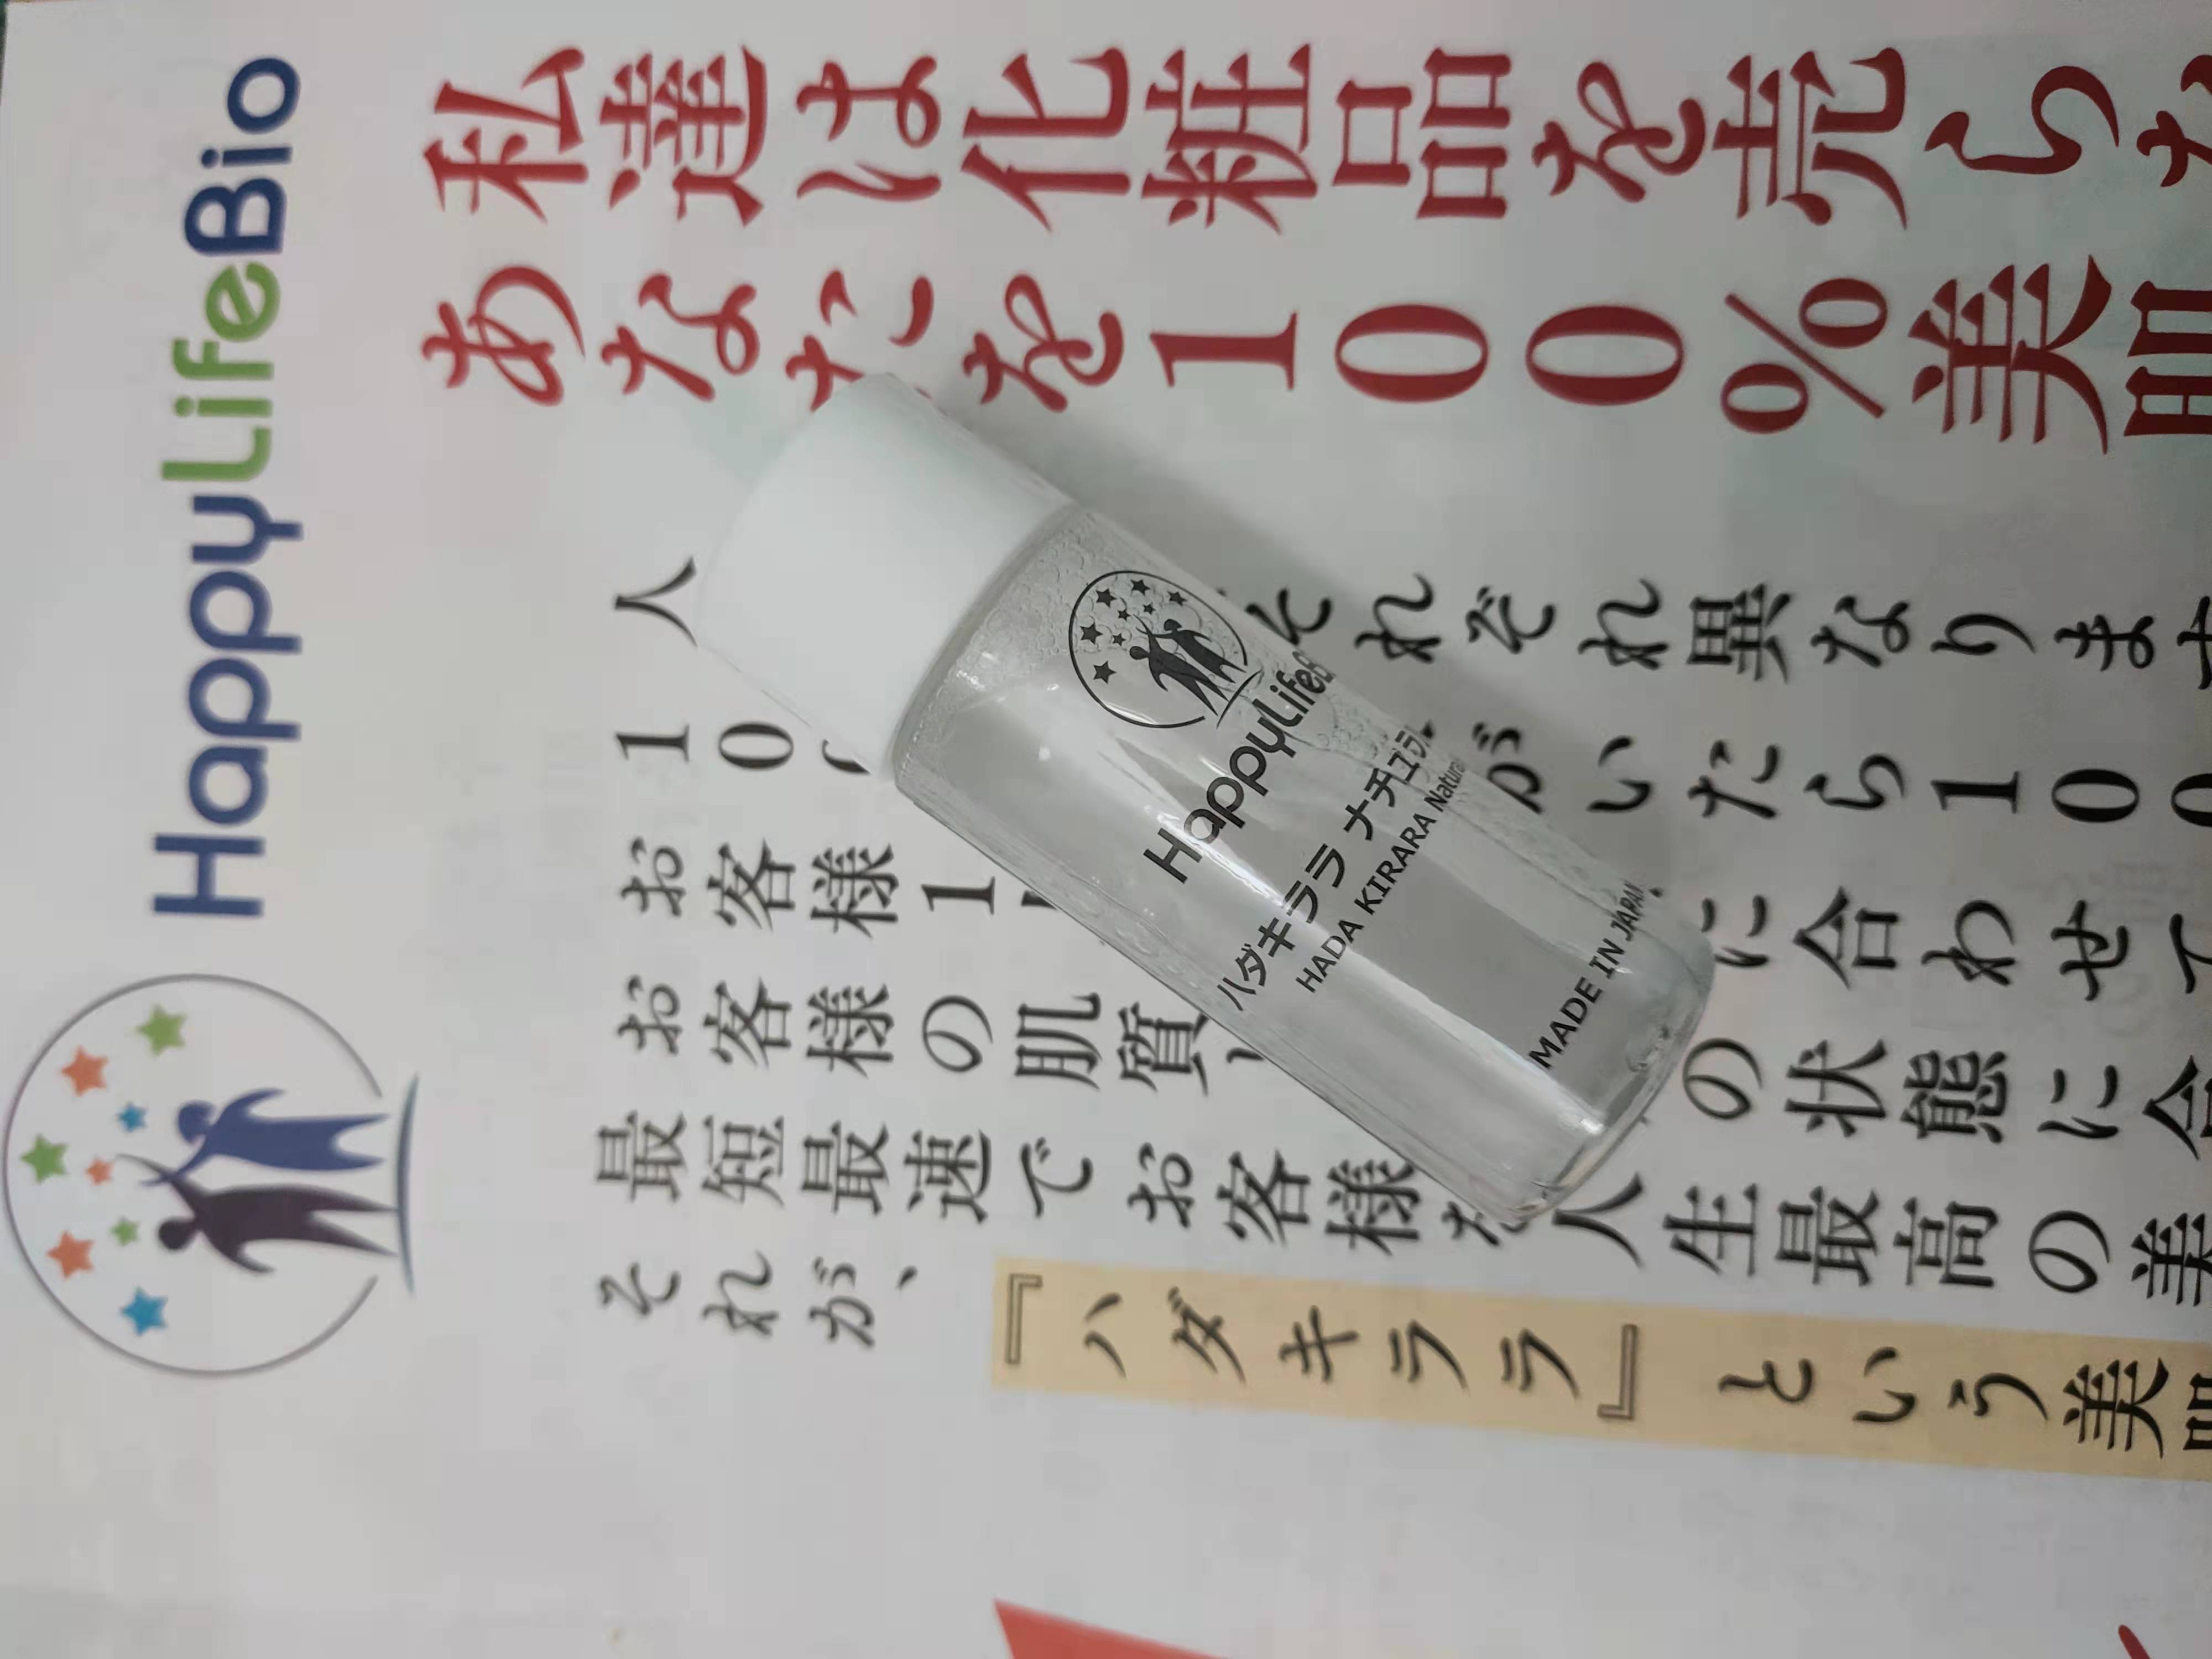 HappyLifeBio
私達は化粧品を売らな
あなたを100%美肌
人 それぞれ異なります
10 がいたら100
お客様1 に合わせて
お客様の肌質 の状態に合
最短最速でお客様を人生最高の美
それが、
『ハダキララ』という美肌
HappyLife
ハダキララ ナチュラ
HADA KIRARA Natural
MADE IN JAPAN